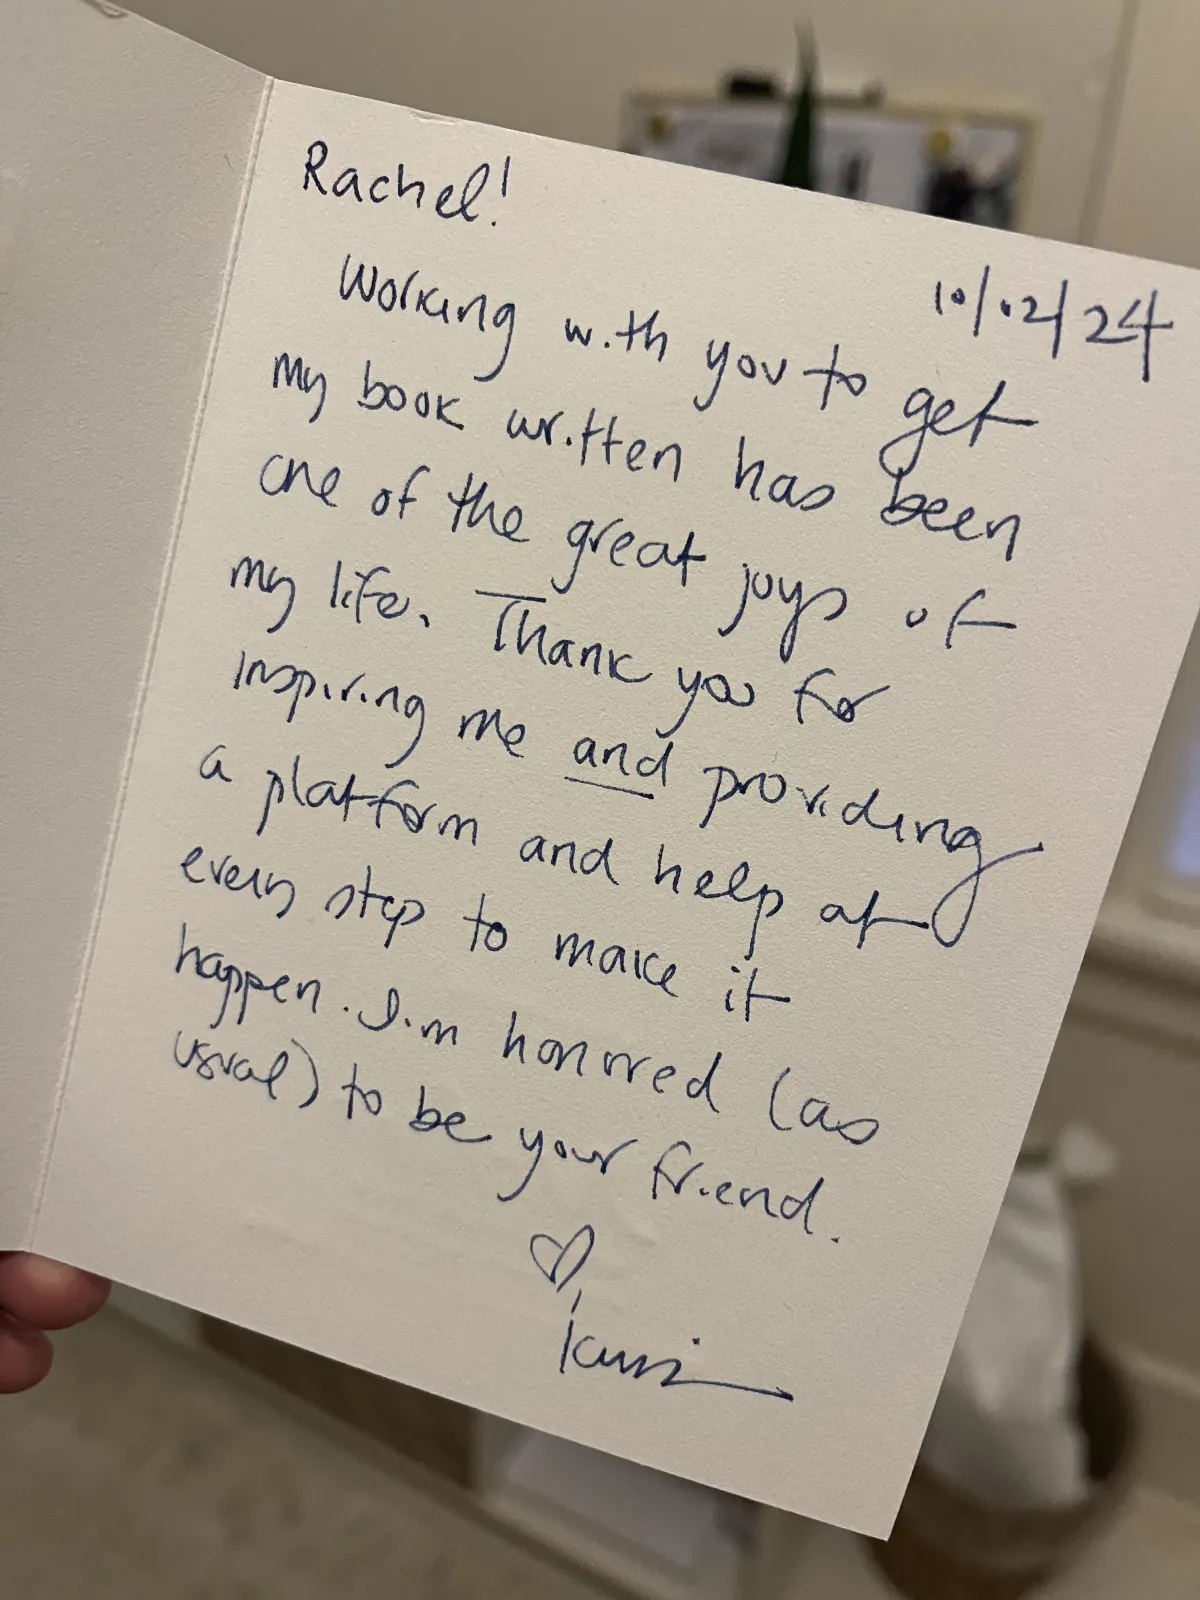 Rachel!
10/02/24
Working with you to get
my book written has been
one of the great joys of
my life. Thank you for
inspiring me and providing
a platform and help at
every step to make it
happen. I'm honored (as
usual) to be your friend.
♡,